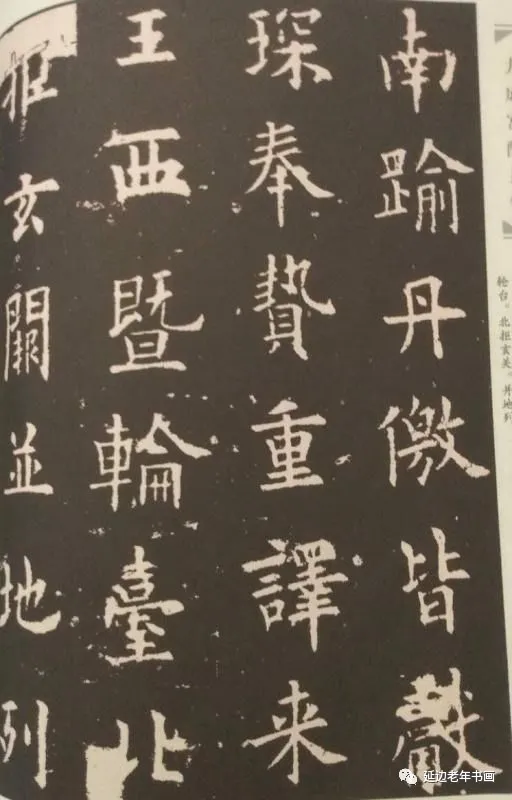 南踰丹徼皆獻
琛奉贄重譯来
王西暨輪臺北
拒玄闕並地列
轮台。北拒玄关。并地列
延边老年书画